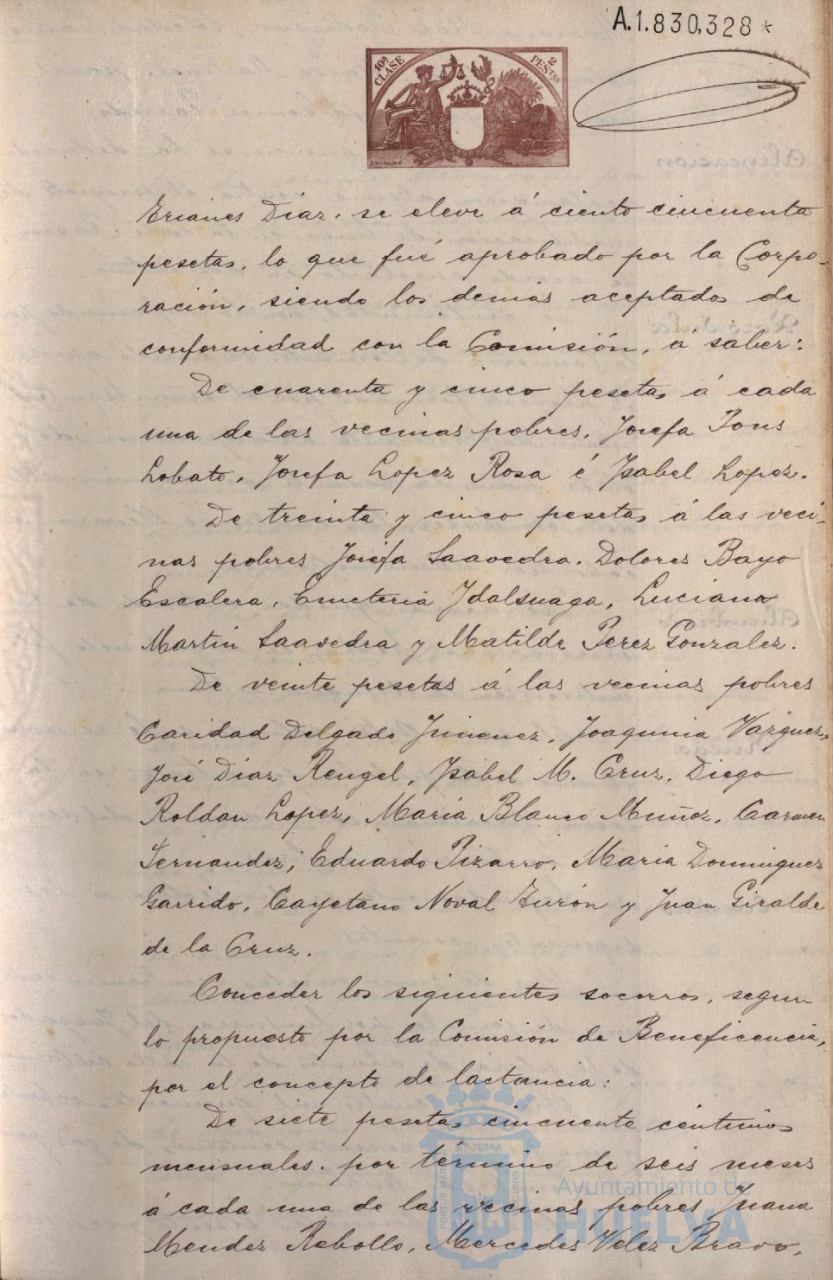 A.1.830,328 *
10ª CLASE
2 PESTAS
Erianes Díaz, se eleve á ciento cincuenta
pesetas, lo que fué aprobado por la Corpo-
ración, siendo los demás aceptados de
conformidad con la Comisión, á saber:
De cuarenta y cinco pesetas á cada
una de las vecinas pobres, Josefa Pons
Lobato, Josefa Lopez Rosa é Ysabel Lopez.
De treinta y cinco pesetas á las veci-
nas pobres Josefa Saavedra, Dolores Bayo
Escalera, Emeteria Ydalsuaga, Luciana
Martin Saavedra y Matilde Perez Gonzalez.
De veinte pesetas á las vecinas pobres
Caridad Delgado Jimenez, Joaquina Vazquez,
José Díaz Rengel, Ysabel M. Cruz, Diego
Roldan Lopez, María Blanco Muñoz, Carmen
Fernandez, Eduardo Pizarro, María Dominguez
Garrido, Cayetano Noval Turón y Juan Giralde
de la Cruz.
Conceder los siguientes socorros, segun
lo propuesto por la Comisión de Beneficencia,
por el concepto de lactancia:
De siete pesetas cincuenta céntimos
mensuales, por término de seis meses
á cada una de las vecinas pobres Juana
Mendez Rebollo, Mercedes Velez Bravo,
Ayuntamiento de
HUELVA